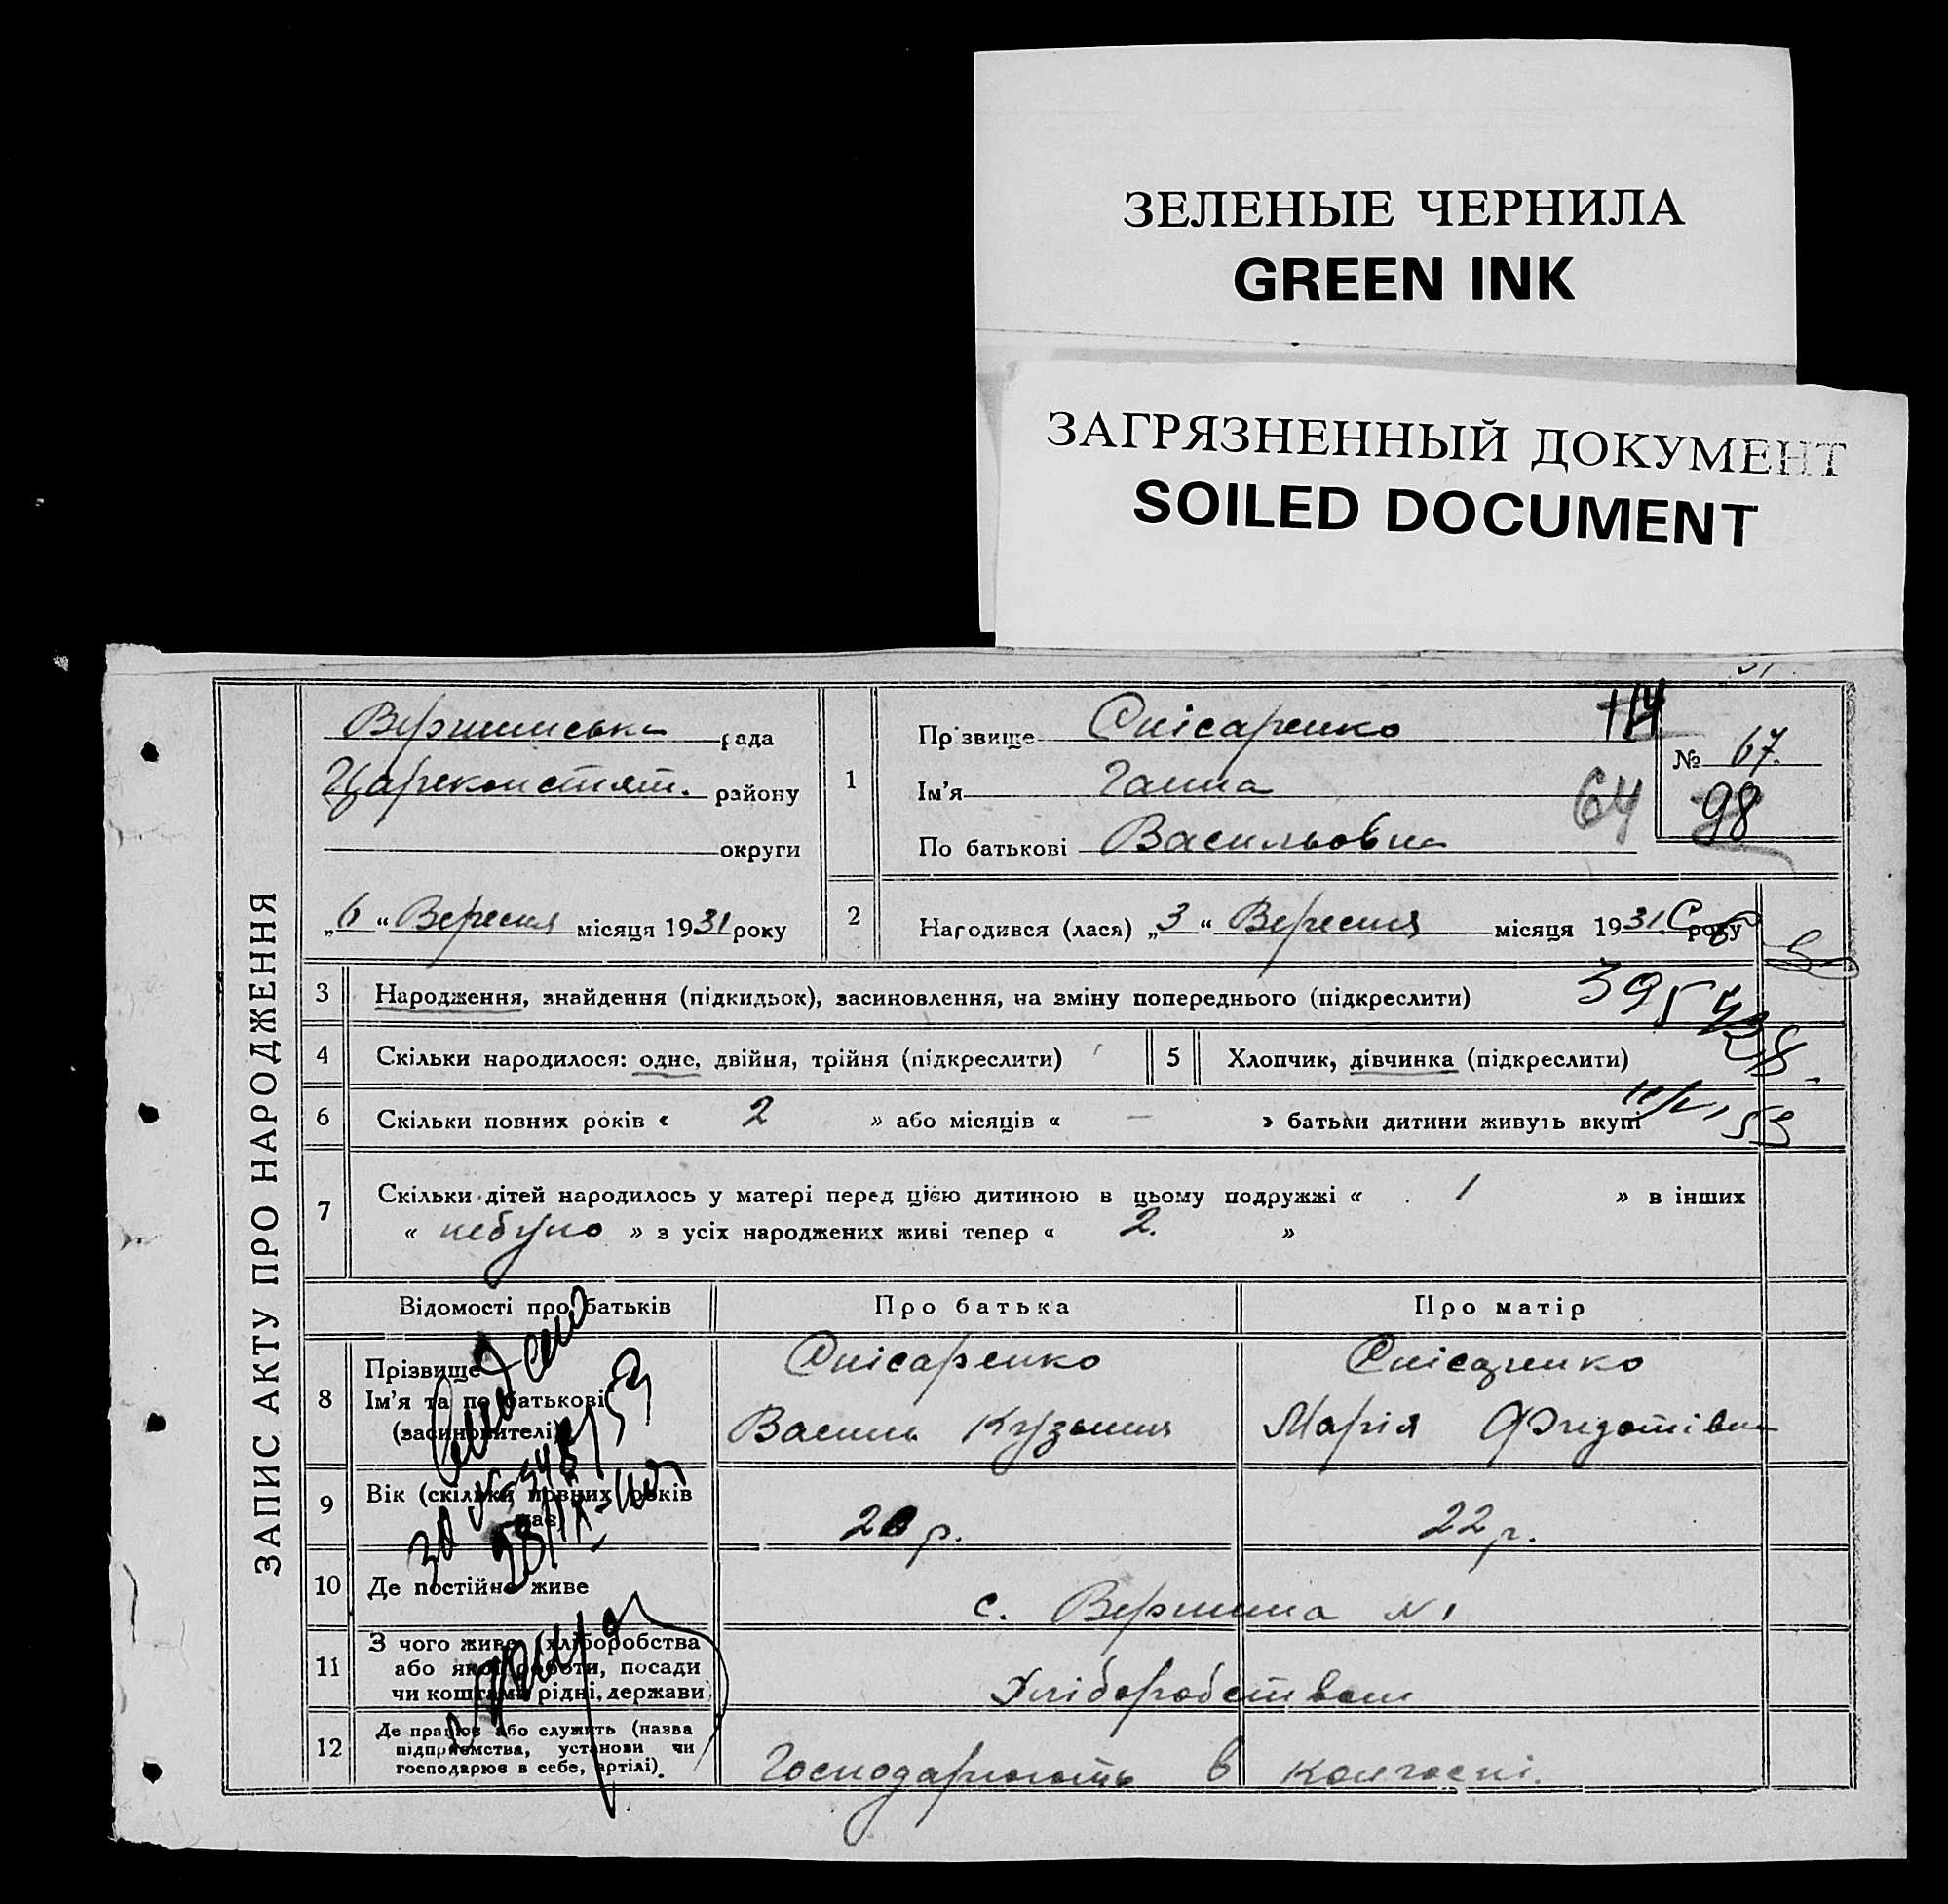 ЗЕЛЕНЫЕ ЧЕРНИЛА
GREEN INK
ЗАГРЯЗНЕННЫЙ ДОКУМЕНТ
SOILED DOCUMENT
ЗАПИС АКТУ ПРО НАРОДЖЕННЯ
Вершинська рада
Цареконстянт. району
округи
„6“ Вересня місяця 1931 року
1
Прізвище Снісаренко
Ім'я Ганна
По батькові Васильовна
114
64
№ 67.
98
2 Народився (лася) „3“ Вересня місяця 1931 року
3 Народження, знайдення (підкидьок), засиновлення, на зміну попереднього (підкреслити)
4 Скільки народилося: одне, двійня, трійня (підкреслити)
5 Хлопчик, дівчинка (підкреслити)
6 Скільки повних років « 2 » або місяців « — » батьки дитини живуть вкупі
53
7 Скільки дітей народилось у матері перед цією дитиною в цьому подружжі « 1 » в інших
« небуло » з усіх народжених живі тепер « 2. »
Відомості про батьків Про батька Про матір
8 Прізвище Снісаренко Снісаренко
Ім'я та по батькові Василь Кузьмич Марія Федотівна
(засиновителі)
9 Вік (скільки повних років має) р. 22 р.
10 Де постійно живе с. Вершина №1
11 З чого живе (хліборобства
або якої роботи, посади
чи коштами рідні, держави) Хліборобством
12 Де працює або служить (назва
підприємства, установи чи
господарює в себе, артілі). Господарюють в колгоспі.